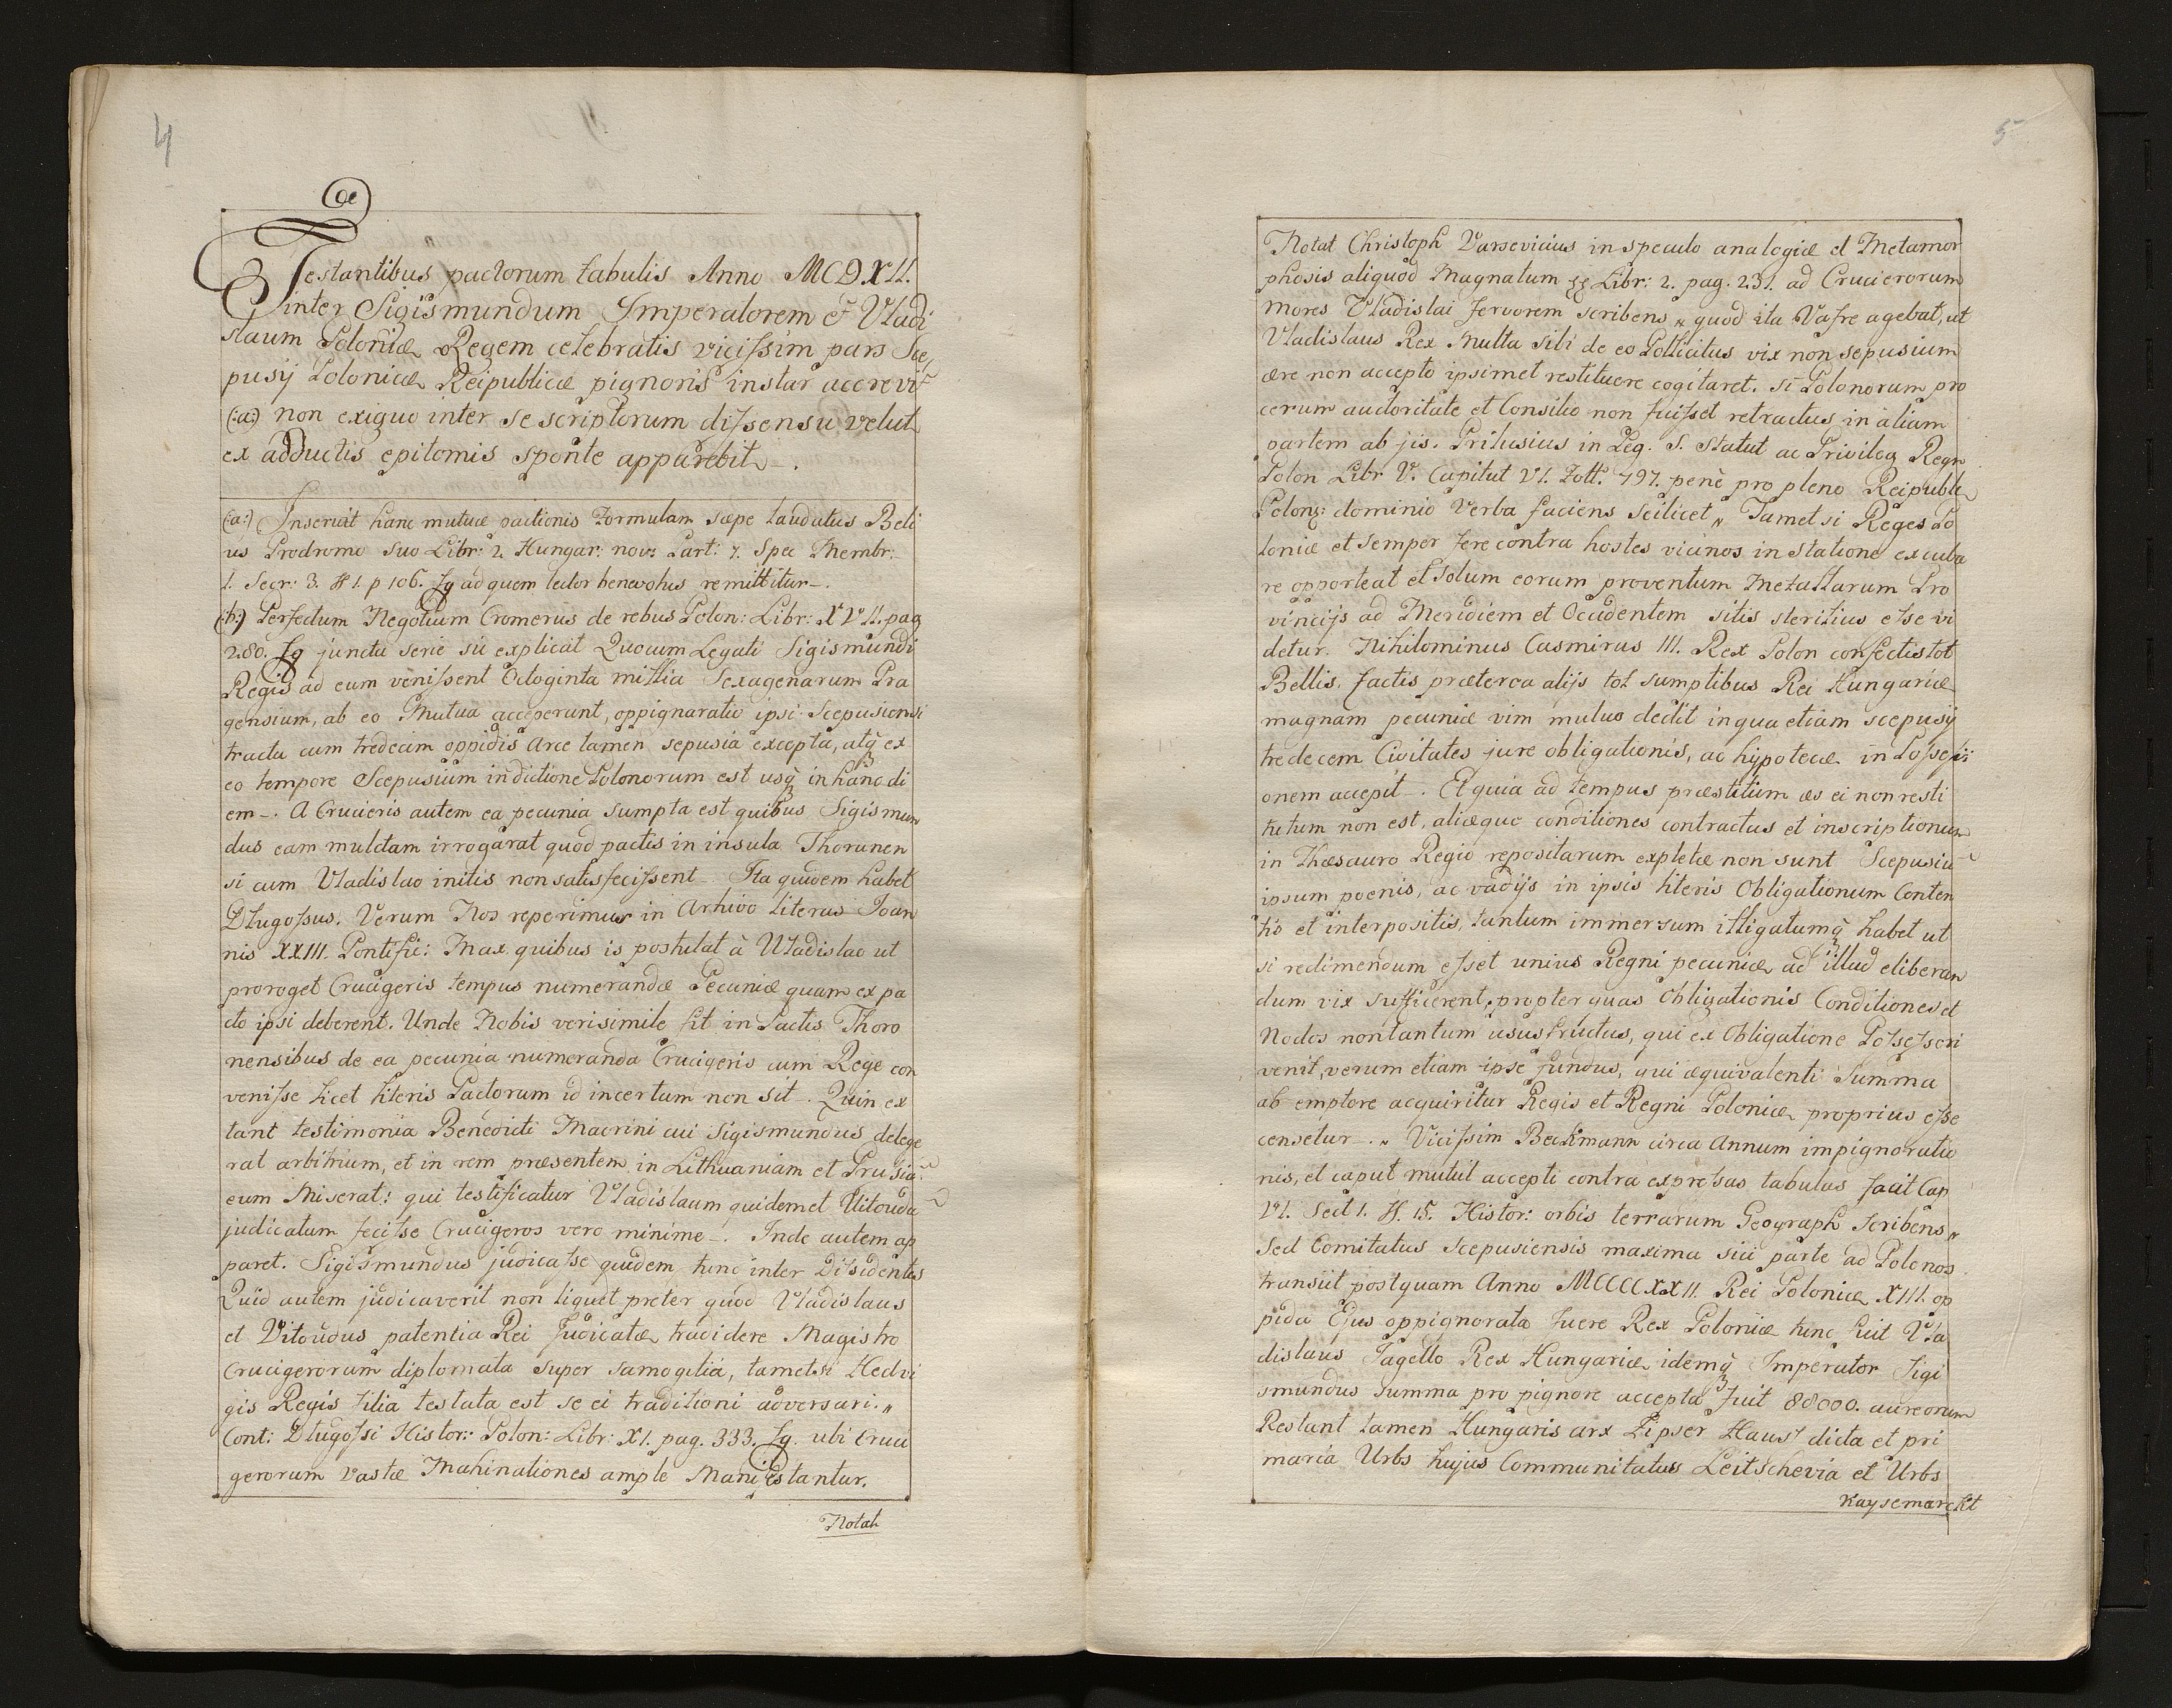 4
Testantibus pactorum tabulis Anno MCDXII.
inter Sigismundum Imperatorem et Vladi
slaum Poloniæ Regem celebratis vicissim pars Sce
pusij Polonicæ Reipublicæ pignoris instar accrevit
(:a:) non exiguo inter se scriptorum dissensu velut
ex adductis epitomis sponte apparebit.
(:a:) Inseruit hanc mutuæ pactionis Formulam sæpe laudatus Beli
us Prodromo suo Libr: 2. Hungar: nov: Part: 7. Spec Membr:
1. Secr: 3. § 1. p 106. sq ad quem lector benevolus remittitur.
(:b:) Perfectum Negotium Cromerus de rebus Polon: Libr: XVII. pag
280. sq juncta serie sic explicat Quocum Legati Sigismundi
Regis ad eum venissent Octoginta millia Sexagenarum Pra
gensium, ab eo Mutua acceperunt, oppignaratio ipsi Scepusiensi
tractu cum tredecim oppidis Arce tamen sepusia excepta, atq ex
eo tempore Scepusium in dictione Polonorum est usq in hanc di
em. A Cruciferis autem ea pecunia sumpta est quibus Sigismun
dus eam mulctam irrogarat quod pactis in insula Thorunen
si cum Vladislao initis non satisfecissent. Ita quidem habet
Dlugossus. Verum Nos reperimus in Arhivo literas Joan
nis XXIII. Pontific: Max. quibus is postulat à Uladislao ut
proroget Crucigeris tempus numerandæ Pecuniæ quam ex pa
cto ipsi deberent. Unde Nobis verisimile fit in Pactis Thoro
nensibus de ea pecunia numeranda Crucigeris cum Rege con
venisse licet literis Pactorum id incertum non sit. Quin ex
tant testimonia Benedicti Macrini cui Sigismundus delege
rat arbitrium, et in rem præsentem in Lithuaniam et Prusia
eum Miserat: qui testificatur Vladislaum quidem et Vitouda
judicatum fecisse Crucigeros vero minime. Inde autem ap
paret. Sigismundus judicasse quidem tunc inter Dissidentes
Quid autem judicaverit non liquet preter quod Vladislaus
et Vitoudus patentia Rei Judicatæ tradidere Magistro
Crucigerorum diplomata super Samogitia, tametsi Hedvi
gis Regis filia testata est se ei traditioni adversari."
Cont: Dlugossi Histor: Polon: Libr: XI. pag. 333. sq. ubi Cruci
gerorum vastæ Mahinationes ample Manifestantur.
Notat
5
Notat Christoph Varsevicius in speculo analogiæ et Metamor
phosis aliquod Magnatum Libr: 2. pag. 231. ad Cruciferorum
mores Vladislai fervorem scribens „ quod ita Vafre agebat, ut
Vladislaus Rex Multa sibi de eo Pollicitus vix non sepusium
ære non accepto ipsimet restituere cogitaret. si Polonorum pro
cerum auctoritate et Consilio non fuisset retractus in aliam
partem ab jis. Prilusius in Leg. S. Statut ac Privileg Regn
Polon Libr V. Capitut VI. Foll. 797. penè pro pleno Reipubl
Polonq: dominio Verba faciens Scilicet „ Tametsi Reges Po
loniæ et semper fere contra hostes vicinos in statione excuba
re opporteat et Solum eorum proventum Metallarum Pro
vincijs ad Meridiem et Occidentem sitis sterilius esse vi
detur. Nihilominus Casmirus III. Rex Polon confectis tot
Bellis, factis præterea alijs tot sumptibus Rei Hungariæ
magnam pecuniæ vim mutuo dedit in qua etiam scepusij
tredecem Civitates jure obligationis, ac hypotecæ in Possessi
onem accepit. Et quia ad tempus præstitum æs ei non resti
tutum non est, aliæque conditiones contractus et inscriptionum
in Thesauro Regio repositarum expletæ non sunt Scepusiu
ipsum poenis, ac vadijs in ipsis literis Obligationum Conten
tis et interpositis, tantum immersum illigatumq habet ut
si redimendum esset unius Regni pecuniæ ad illud eliberan
dum vix sufficerent, propter quas Obligationis Conditiones et
Nodos non tantum ususfructus, qui ex Obligatione Possessori
venit, verum etiam ipse fundus, qui æquivalenti Summa
ab emptore acquiritur Regis et Regni Poloniæ proprius esse
censetur." Vicissim Beckmann circa Annum impignoratio
nis, et caput mutui accepti contra expressas tabulas facit Cap
VI. Sect 1. §. 15. Histor: orbis terrarum Geograph scribens „
Sed Comitatus Scepusiensis maxima sui parte ad Polonos
transiit postquam Anno MCCCCXXII. Rei Poloniæ XIII. op
pida Ejus oppignorata fuere Rex Poloniæ tunc fuit Vla
dislaus Jagello Rex Hungariæ idemq Imperator Sigi
smundus summa pro pignore accepta fuit 88000. aureorum
Restant tamen Hungaris arx Zipser Haus dicta et pri
maria Urbs hujus Communitatus Leitschevia et Urbs
Kaysemarckt